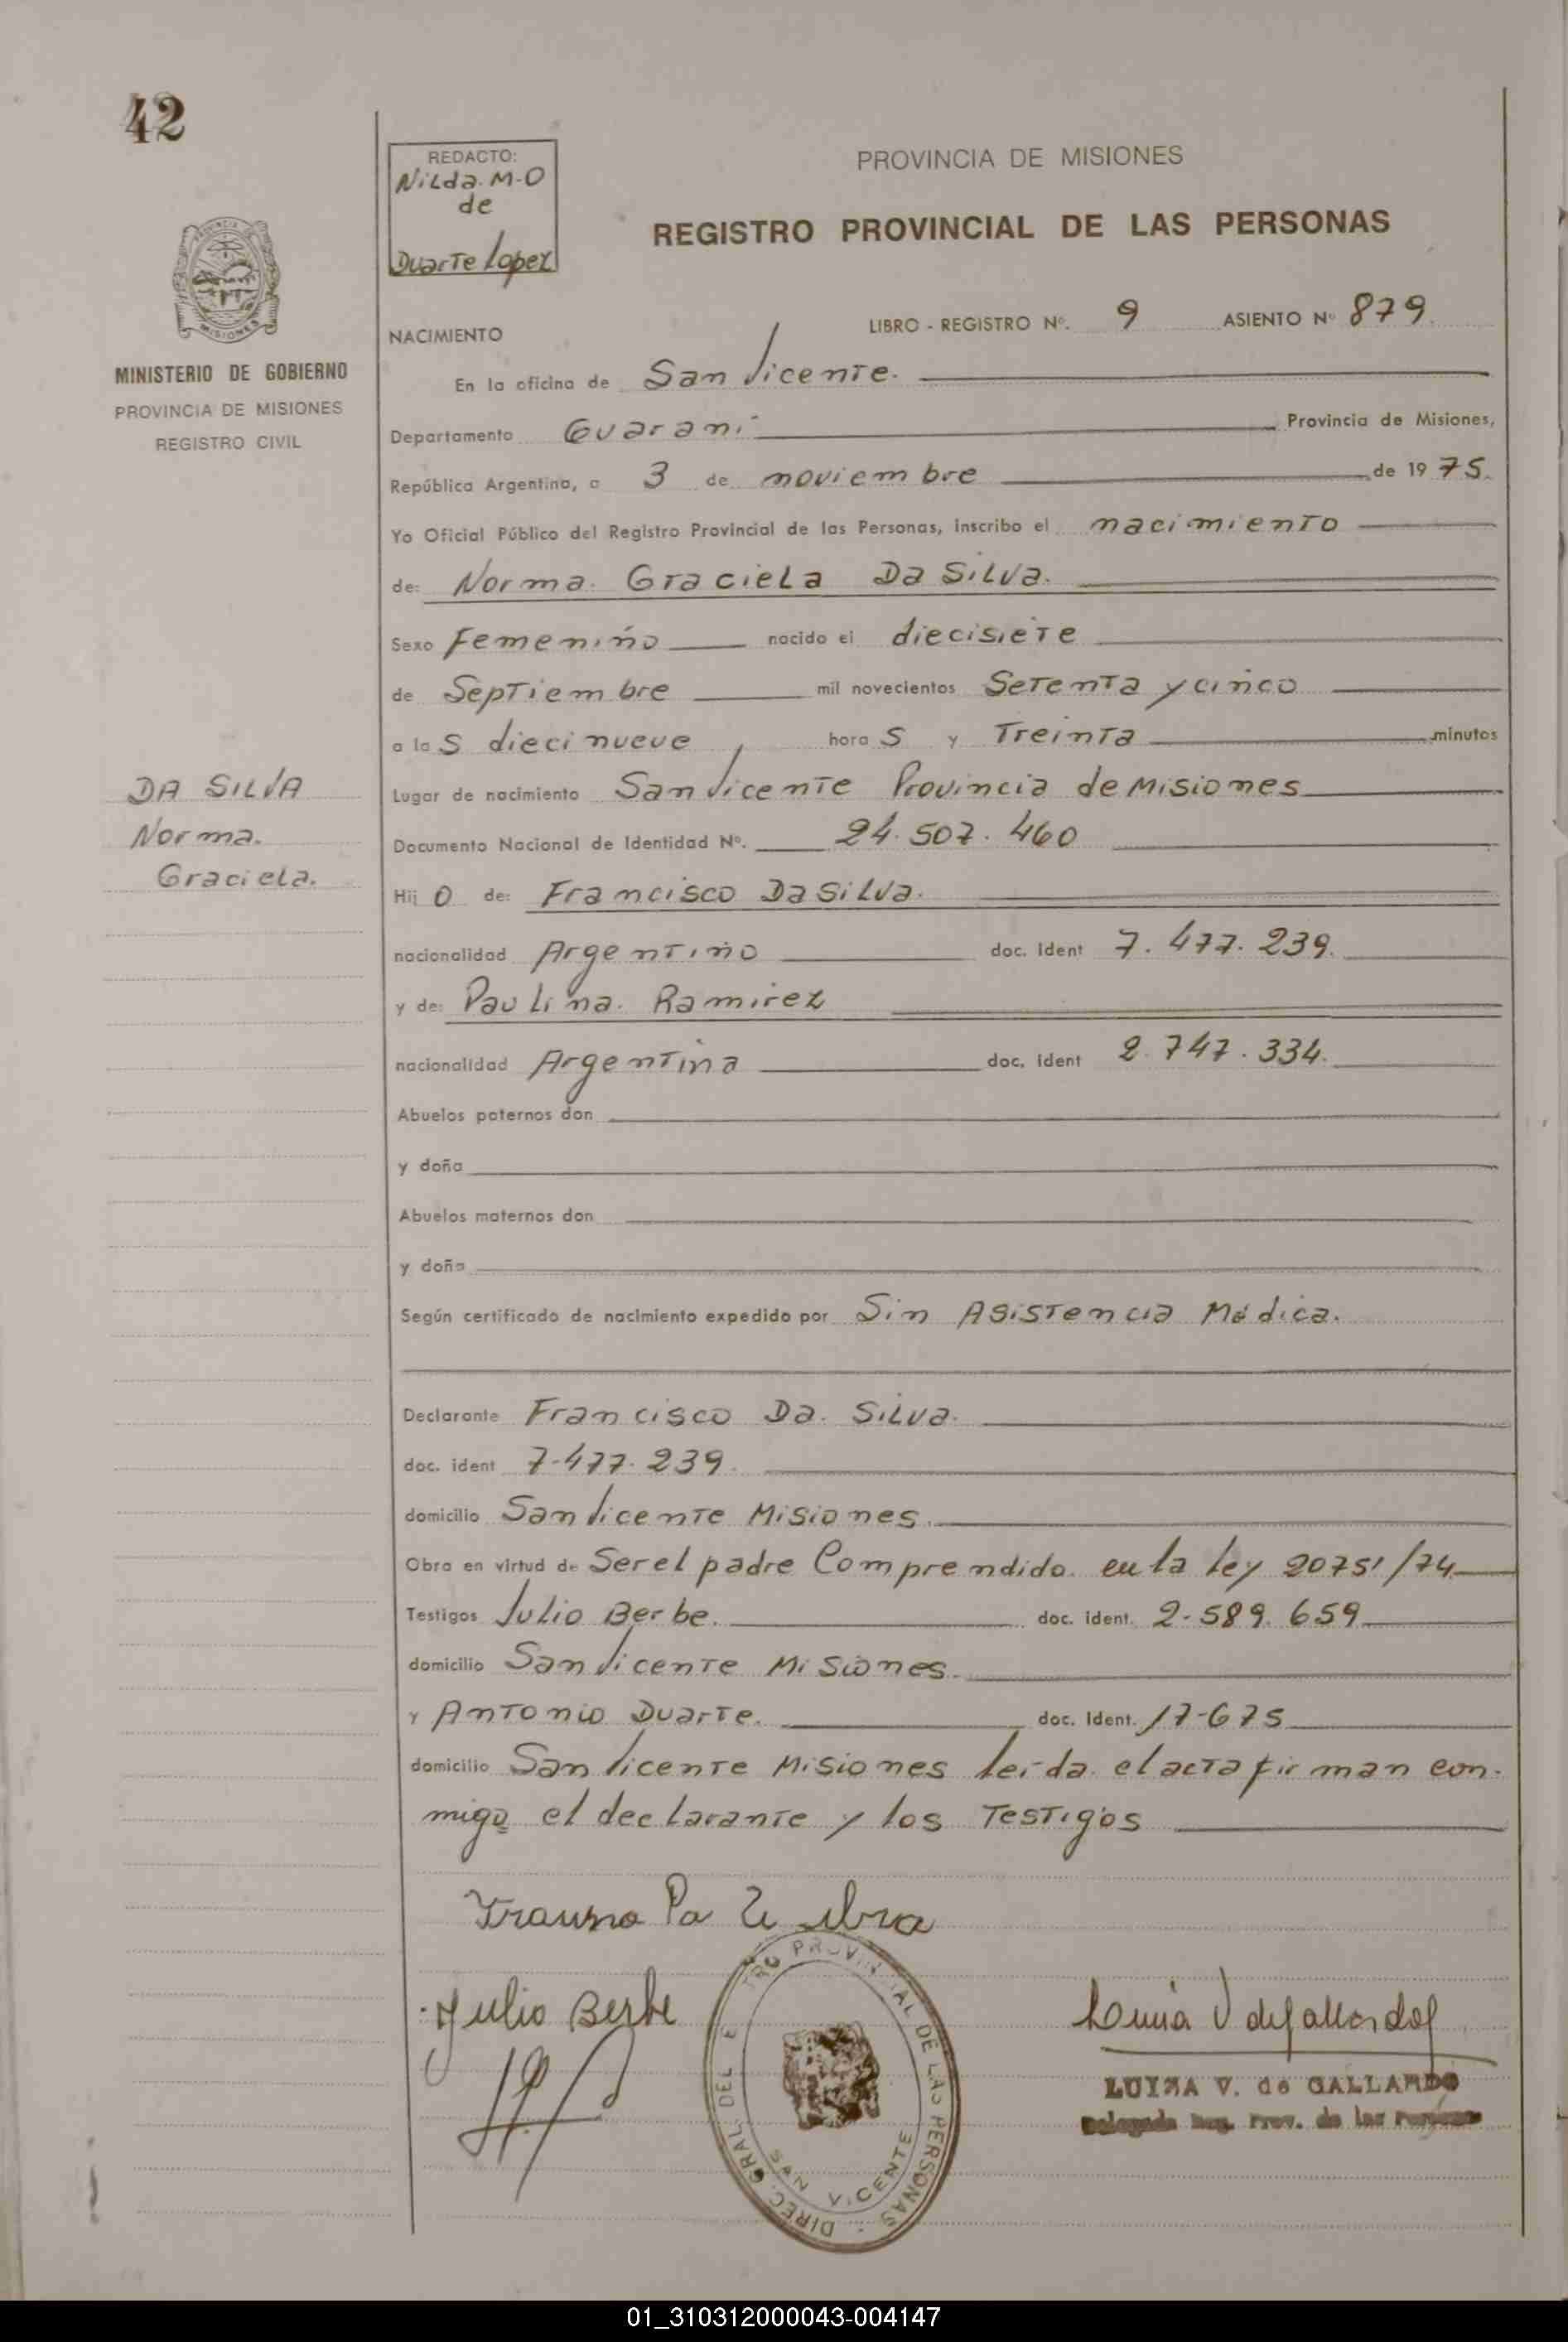 42
REDACTO:
Nilda. M-O
de
Duarte Lopez
PROVINCIA DE MISIONES
REGISTRO PROVINCIAL DE LAS PERSONAS
MISIONES
MINISTERIO DE GOBIERNO
PROVINCIA DE MISIONES
REGISTRO CIVIL
NACIMIENTO
LIBRO - REGISTRO Nº. 9 ASIENTO Nº 879.
En la oficina de San Vicente.
Departamento Guaraní Provincia de Misiones,
República Argentina, a 3 de noviembre de 1975.
Yo Oficial Público del Registro Provincial de las Personas, inscribo el nacimiento
de: Norma. Graciela Da Silva.
Sexo Femenino nacido el diecisiete
de Septiembre mil novecientos Setenta y cinco
a las diecinueve horas y Treinta minutos
DA SILVA
Norma.
Graciela.
Lugar de nacimiento San Vicente Provincia de Misiones
Documento Nacional de Identidad Nº. 24.507.460
Hijo de: Francisco Da Silva.
nacionalidad Argentino doc. ident 7.477.239.
y de: Paulina. Ramirez
nacionalidad Argentina doc. ident 2.747.334.
Abuelos paternos don
y doña
Abuelos maternos don
y doña
Según certificado de nacimiento expedido por Sin Asistencia Médica.
Declarante Francisco Da. Silva.
doc. ident 7-477.239.
domicilio San Vicente Misiones.
Obra en virtud de Ser el padre Comprendido. en la ley 20751/74
Testigos Julio Berbe. doc. ident. 2-589.659
domicilio San Vicente Misiones.
y Antonio Duarte. doc. ident. 17-675
domicilio San Vicente Misiones leída. el acta firman con-
migo el declarante y los Testigos
Julio Berbe
DIREC. GRAL. DEL PROVINCIAL DE LAS PERSONAS
SAN VICENTE
LUISA V. de GALLARDO
Delegada Reg. Prov. de las Personas
01_310312000043-004147